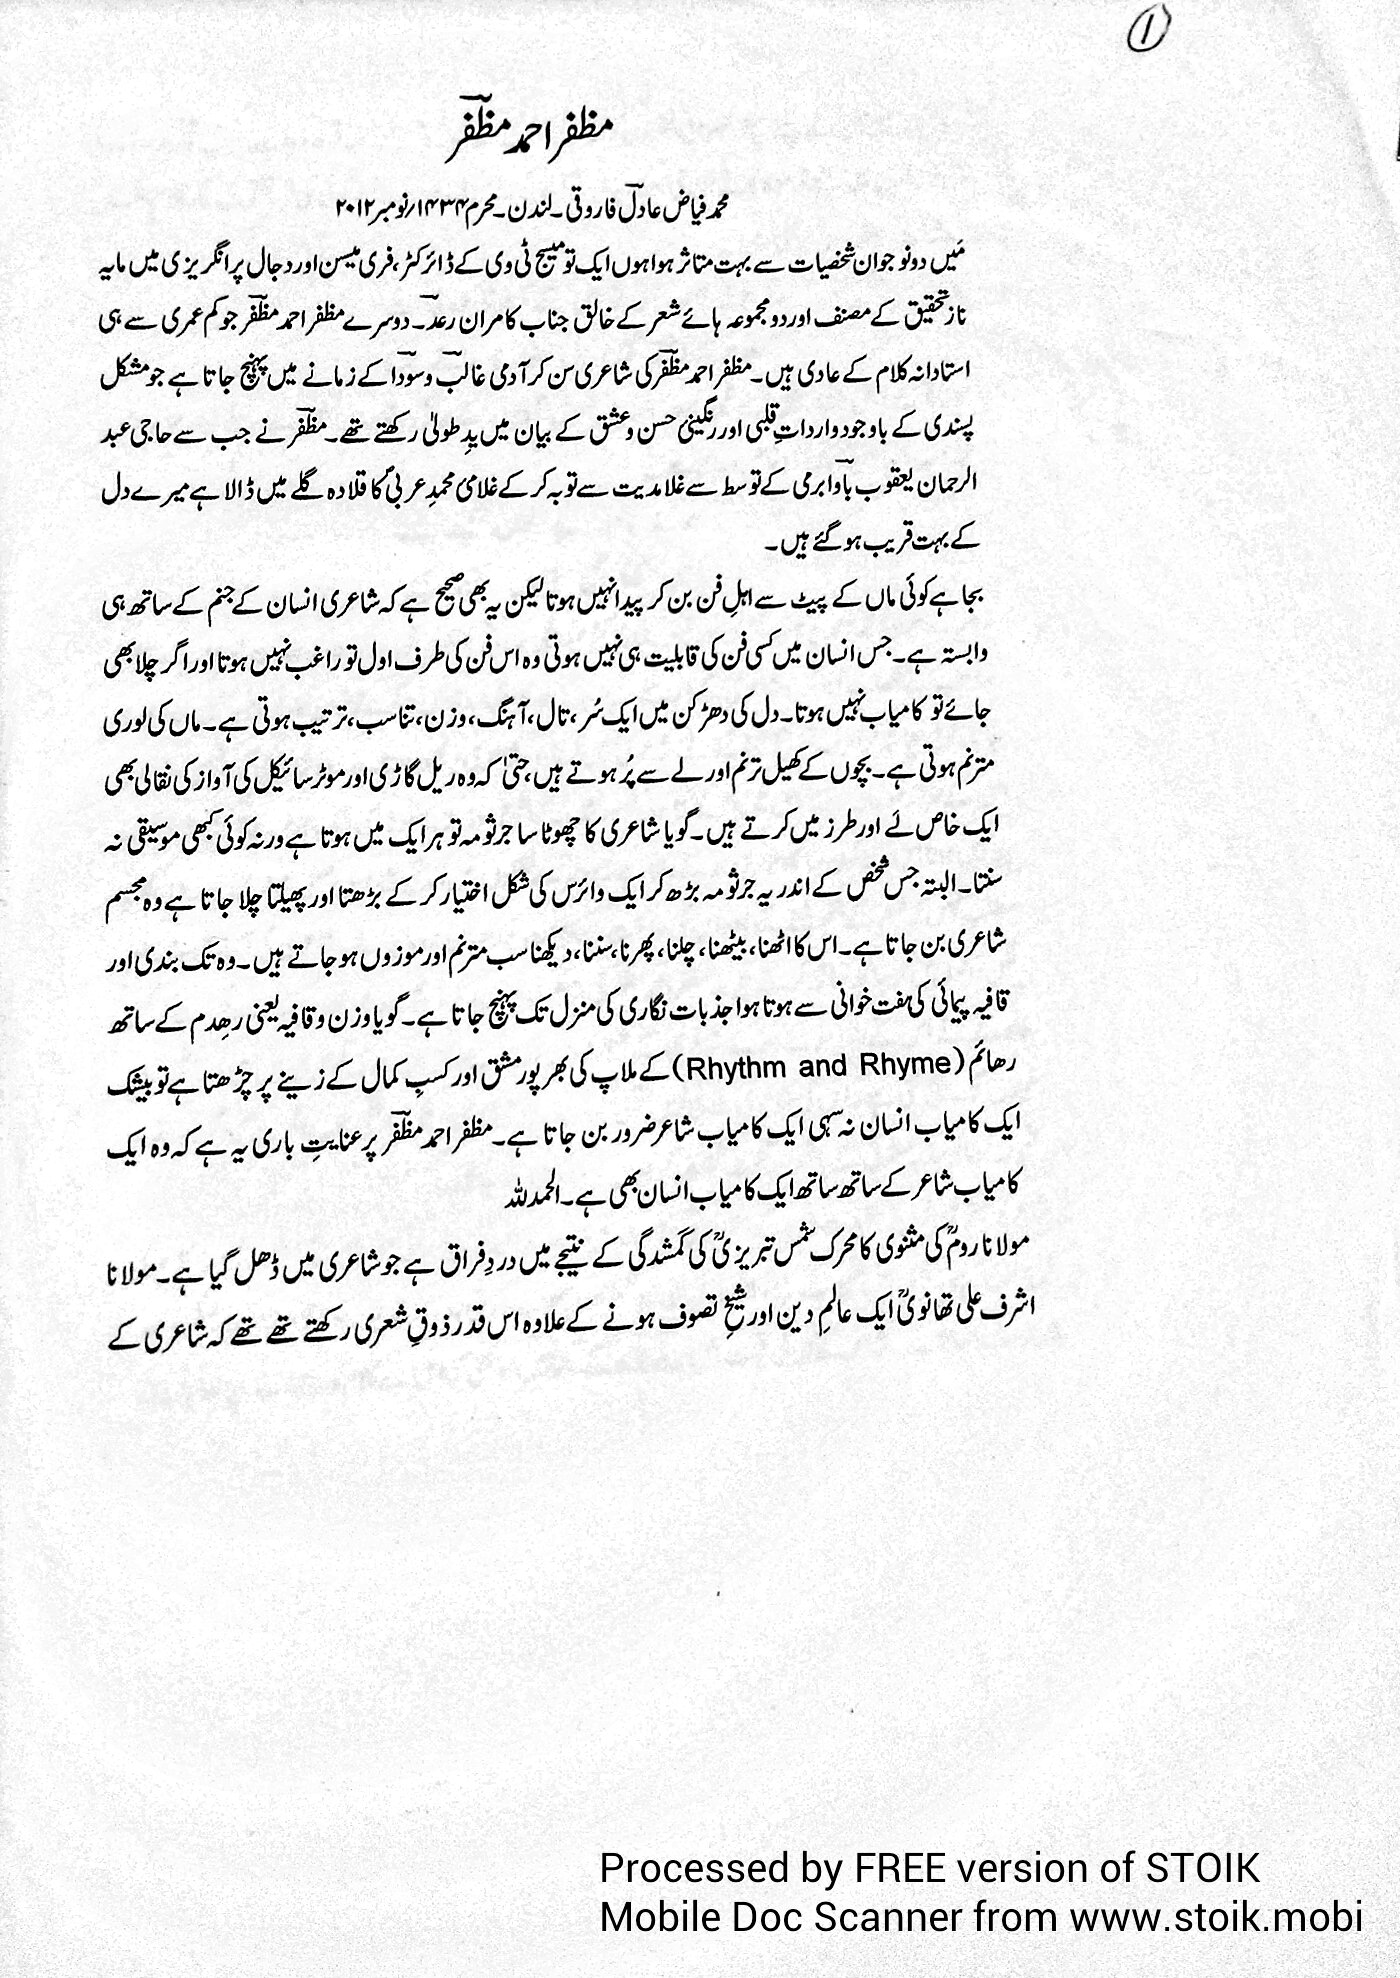 1
مظفر احمد مظفرؔ
محمد فیاض عادلؔ فاروقی۔ لندن۔ محرم ۱۴۳۴/نومبر ۲۰۱۲
مَیں دو نوجوان شخصیات سے بہت متاثر ہوا ہوں ایک تو مسیح ٹی وی کے ڈائرکٹر، فری میسن اور دجال پر انگریزی میں مایہ
ناز تحقیق کے مصنف اور دو مجموعہ ہائے شعر کے خالق جناب کامران رعدؔ۔ دوسرے مظفر احمد مظفرؔ جو کم عمری سے ہی
استادانہ کلام کے عادی ہیں۔ مظفر احمد مظفرؔ کی شاعری سن کر آدمی غالبؔ و سوداؔ کے زمانے میں پہنچ جاتا ہے جو مشکل
پسندی کے باوجود وارداتِ قلبی اور رنگینیٔ حسن و عشق کے بیان میں یدِ طولیٰ رکھتے تھے۔ مظفرؔ نے جب سے حاجی عبد
الرحمان یعقوب باواؔ برمی کے توسط سے غلامدیت سے توبہ کر کے غلامیٔ محمدِ عربیؐ کا قلادہ گلے میں ڈالا ہے میرے دل
کے بہت قریب ہو گئے ہیں۔
بجا ہے کوئی ماں کے پیٹ سے اہلِ فن بن کر پیدا نہیں ہوتا لیکن یہ بھی صحیح ہے کہ شاعری انسان کے جنم کے ساتھ ہی
وابستہ ہے۔ جس انسان میں کسی فن کی قابلیت ہی نہیں ہوتی وہ اس فن کی طرف اول تو راغب نہیں ہوتا اور اگر چلا بھی
جائے تو کامیاب نہیں ہوتا۔ دل کی دھڑکن میں ایک سُر، تال، آہنگ، وزن، تناسب، ترتیب ہوتی ہے۔ ماں کی لوری
مترنم ہوتی ہے۔ بچوں کے کھیل ترنم اور لے سے پُر ہوتے ہیں، حتیٰ کہ وہ ریل گاڑی اور موٹر سائیکل کی آواز کی نقالی بھی
ایک خاص لے اور طرز میں کرتے ہیں۔ گویا شاعری کا چھوٹا سا جرثومہ تو ہر ایک میں ہوتا ہے ورنہ کوئی کبھی موسیقی نہ
سنتا۔ البتہ جس شخص کے اندر یہ جرثومہ بڑھ کر ایک وائرس کی شکل اختیار کر کے بڑھتا اور پھیلتا چلا جاتا ہے وہ مجسم
شاعری بن جاتا ہے۔ اس کا اٹھنا، بیٹھنا، چلنا، پھرنا، سننا، دیکھنا سب مترنم اور موزوں ہو جاتے ہیں۔ وہ تک بندی اور
قافیہ پیمائی کی ہفت خوانی سے ہوتا ہوا جذبات نگاری کی منزل تک پہنچ جاتا ہے۔ گویا وزن و قافیہ یعنی رھِدم کے ساتھ
رھائم (Rhythm and Rhyme) کے ملاپ کی بھرپور مشق اور کسبِ کمال کے زینے پر چڑھتا ہے تو بیشک
ایک کامیاب انسان نہ سہی ایک کامیاب شاعر ضرور بن جاتا ہے۔ مظفر احمد مظفرؔ پر عنایتِ باری یہ ہے کہ وہ ایک
کامیاب شاعر کے ساتھ ساتھ ایک کامیاب انسان بھی ہے۔ الحمدللہ
مولانا رومؒ کی مثنوی کا محرک شمس تبریزیؒ کی گمشدگی کے نتیجے میں دردِ فراق ہے جو شاعری میں ڈھل گیا ہے۔ مولانا
اشرف علی تھانویؒ ایک عالمِ دین اور شیخِ تصوف ہونے کے علاوہ اس قدر ذوقِ شعری رکھتے تھے تھے کہ شاعری کے
Processed by FREE version of STOIK
Mobile Doc Scanner from www.stoik.mobi